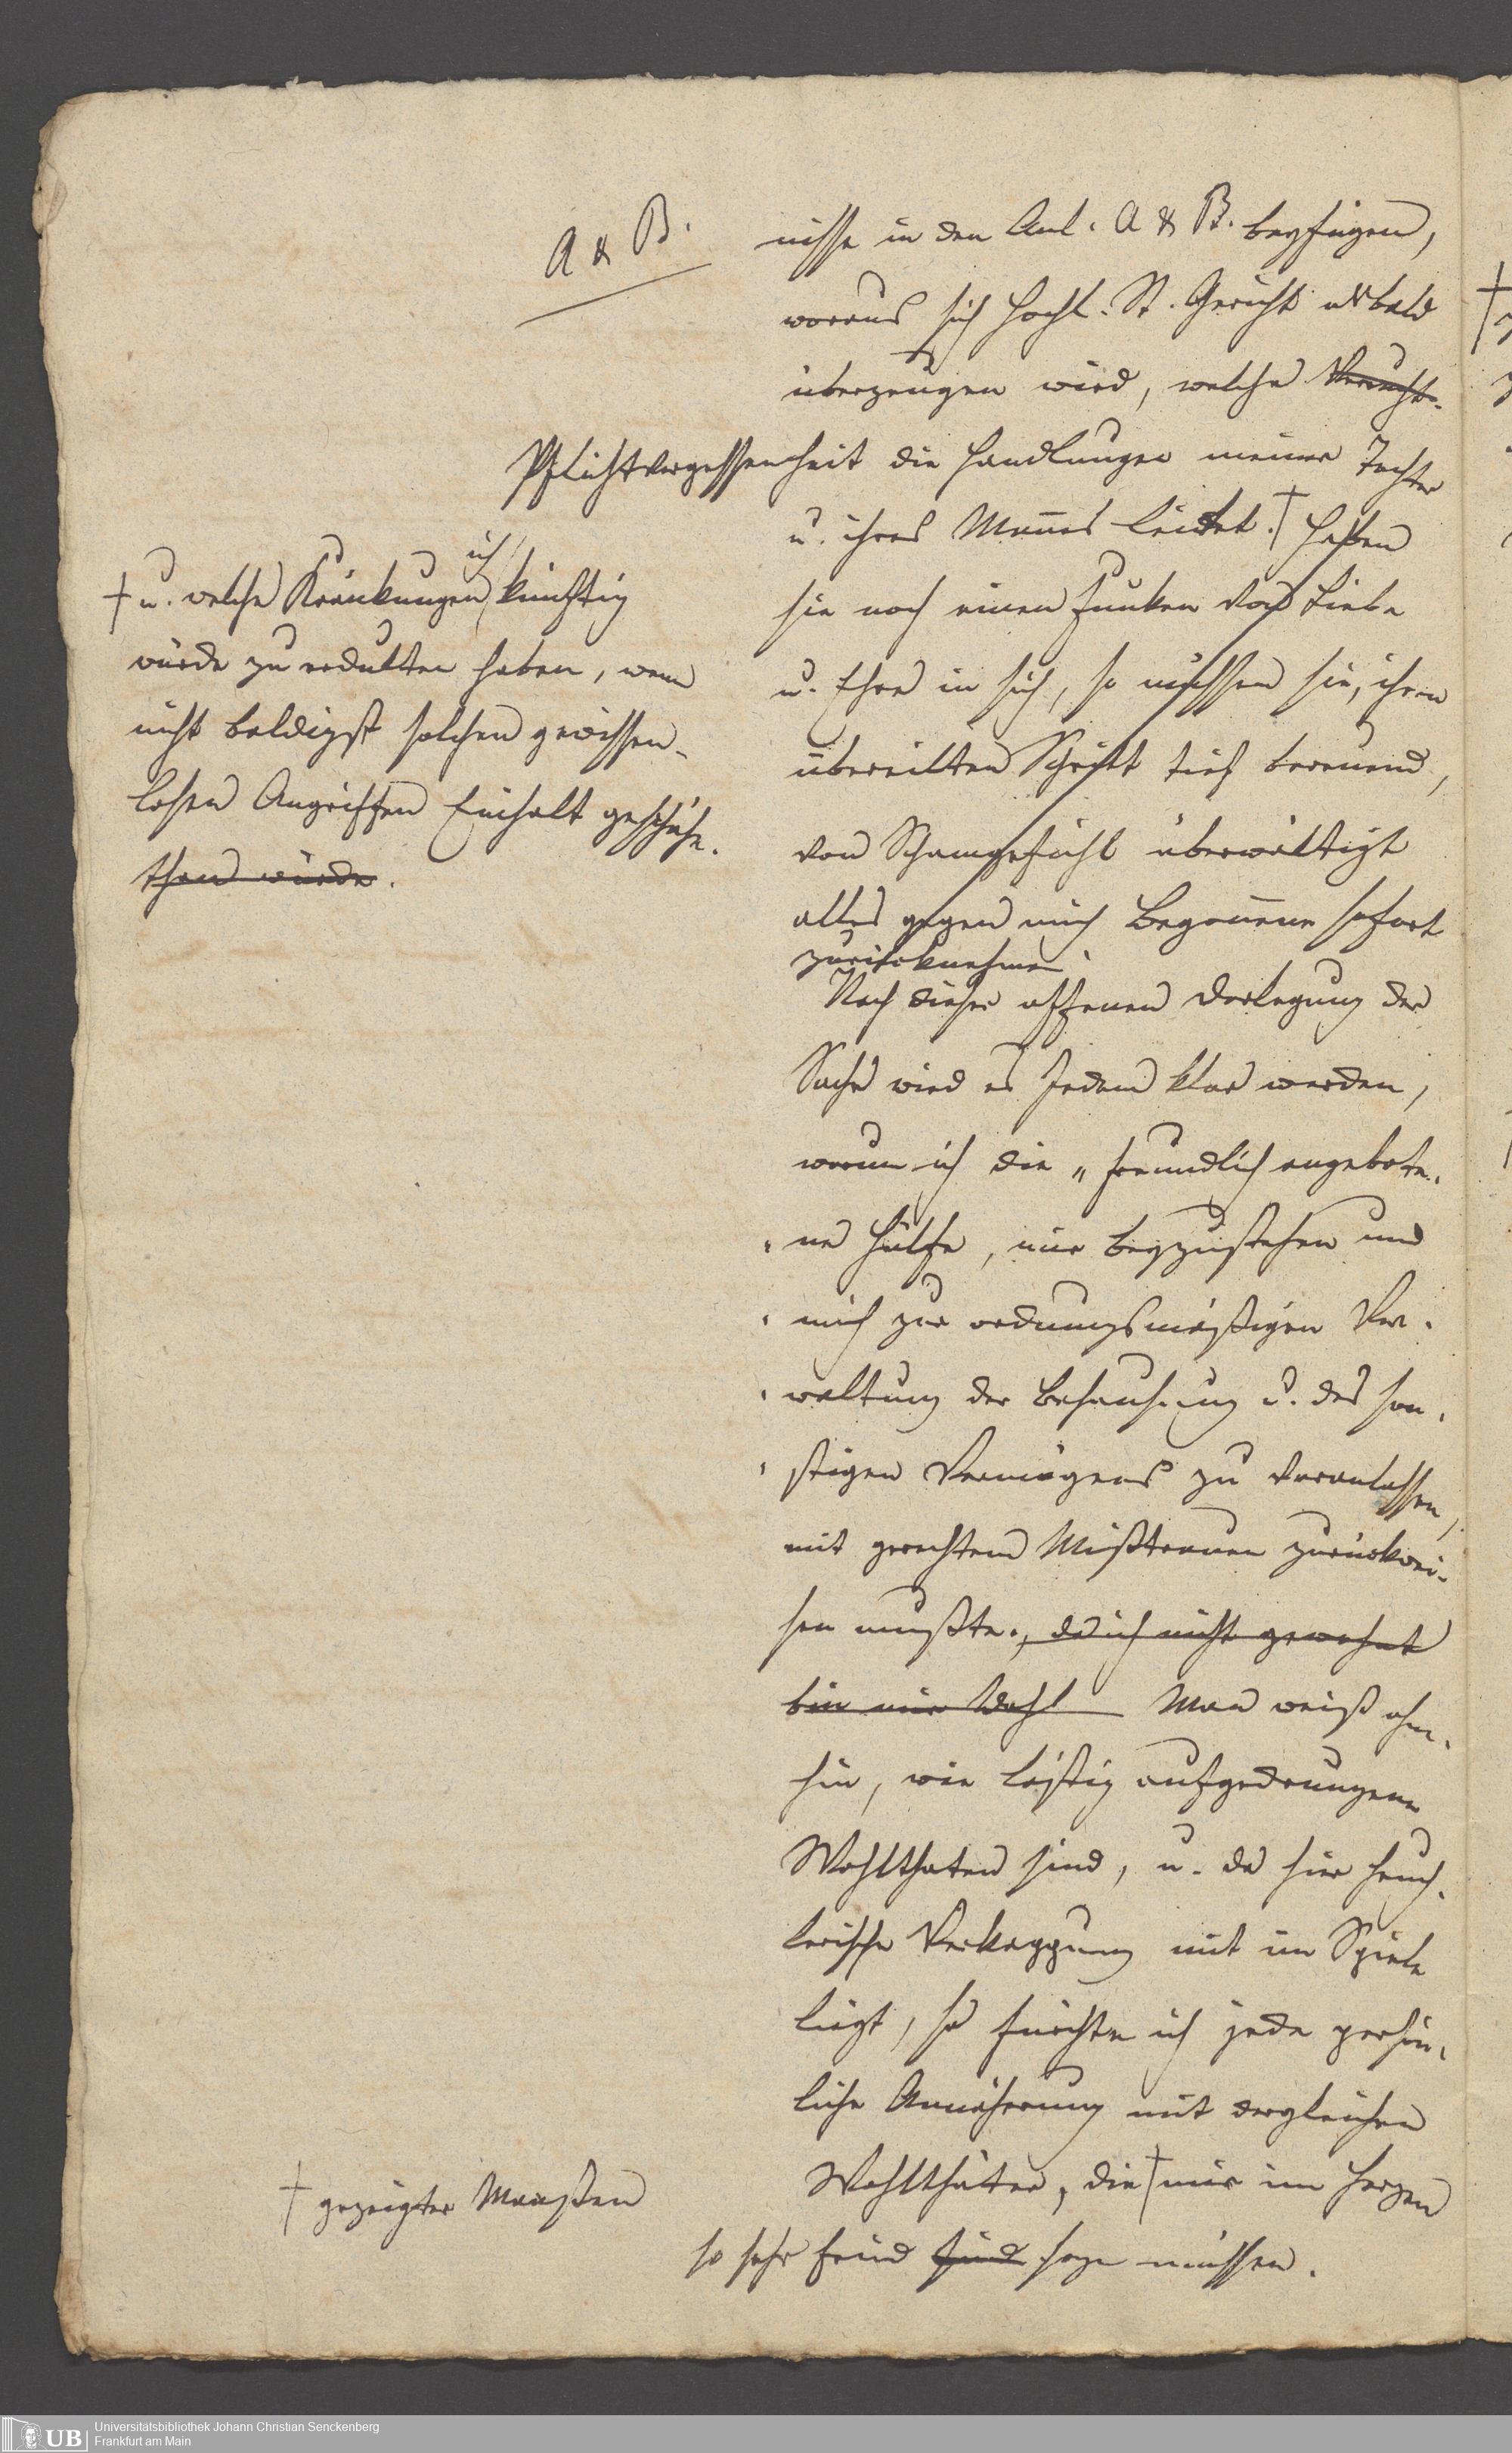 A & B.
nisse in den Anl. A & B. beyfügen,
woraus sich Hochl. St. Gericht alsbald
überzeugen wird, welche
Pflichtvergessenheit die Handlungen meiner Tochter
u. ihres Mannes leitet. † Haben
sie noch einen Funken von Liebe
u. Ehre in sich, so müssen sie, ihren
übereilten Schritt tief bereuend,
von Schamgefühl überwältigt
alles gegen mich Begonnene sofort
zurücknehmen.
† u. welche Kränkungen ich künftig
würde zu erdulten haben, wenn
nicht baldigst solchen gewissen-
losen Angriffen Einhalt geschähe.
than würde.
Nach dieser offenen Darlegung der
Sache wird es Jedem klar werden,
warum ich die „freundlich angebote-
„ne Hülfe, mir beyzustehen und
„mich zur ordnungsmäßigen Ver-
„waltung der Behausung u. des son-
„stigen Vermögens zu veranlassen,
mit gerechtem Mißtrauen zurückwei-
sen mußte., da ich nicht gewohnt
bin mir Wohl Man weiß ohne-
hin, wie lästig aufgedrungene
Wohlthaten sind, u. da hier heuch-
lerische Verkappung mit im Spiele
liegt, so fürchte ich jede persön-
liche Annäherung mit dergleichen
Wohlthäter, die † mir im Herzen
† gezeigter Maaßen
so sehr feind sind seyn müssen.
UB
Universitätsbibliothek Johann Christian Senckenberg
Frankfurt am Main